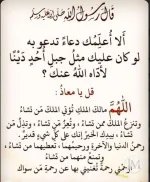 قال رسول الله ﷺ
ألا أُعلِّمك دعاءً تدعو به
لو كان عليك مثلُ جبلِ أُحدٍ دَيْنًا
لأدّاه اللهُ عنك ؟
قل يا معاذُ :
اللَّهُمَّ مالكَ الملكِ تُؤتي الملكَ مَن تشاءُ
وتنزعُ الملكَ ممن تشاءُ ، وتُعِزُّ مَن تشاءُ ، وتُذِلُّ مَن
تشاءُ ، بيدِك الخيرُ إنك على كلِّ شيءٍ قديرٌ .
رحمنُ الدنيا والآخرةِ ورحيمُهما ، تعطيهما من تشاءُ ،
وتمنعُ منهما من تشاءُ
ارحمْني رحمةً تُغنيني بها عن رحمةِ مَن سواك